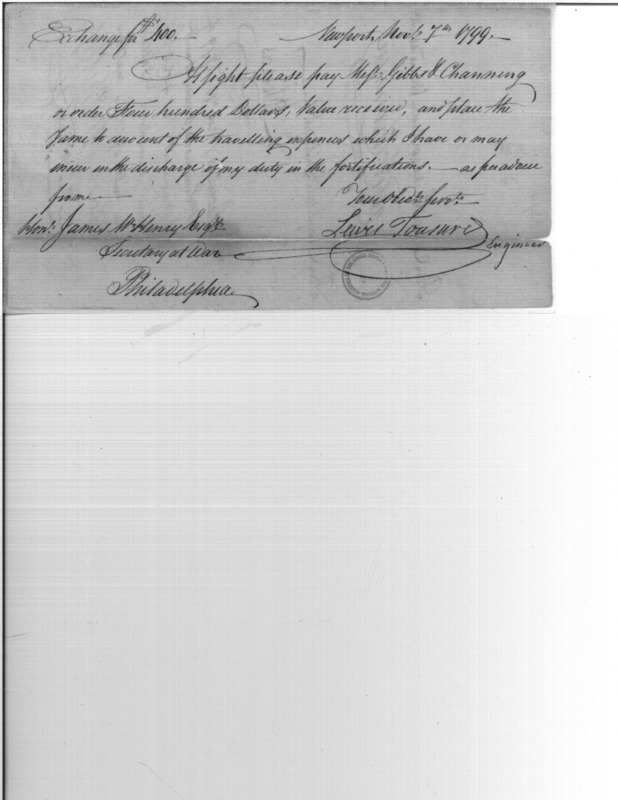 Exchange for $400.— Newport Novr. 7th 1799.—
At sight please pay Messrs. Gibbs & Channing
or order Four hundred Dollars, Value received, and place the
same to account of the travelling expences which I have or may
incur in the discharge of my duty in the fortifications.— as per advice
from — Your Obedt. Servt.
Honr. James McHenry Esqre. Lewis Tousard
Secretary at War Engineer
Philadelphia